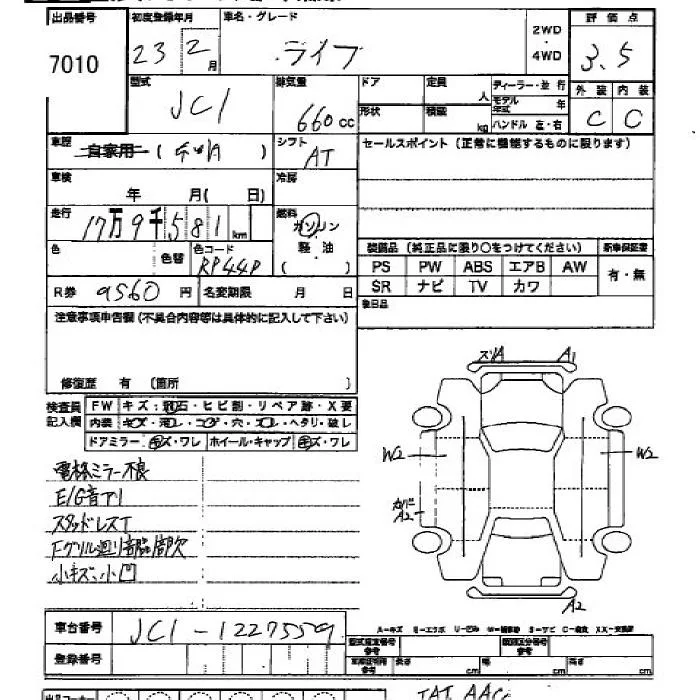 出品番号 初度登録年月 車名・グレード 評価点
7010 23 2月 ライフ 2WD・4WD 3.5
型式 排気量 ドア 定員 人 ディーラー・並行 外装 内装
JC1 660cc 形状 積載 kg モデル年式 年 C C
ハンドル 左・右
車歴 自家用 ( ) シフト AT セールスポイント(正常に機能するものに限ります)
車検 年 月( 日) 冷房
走行 17万9千581km 燃料 ガソリン
色 色替 色コード RP44P 軽・油 ( ) 装備品(純正品に限り○をつけてください) 新車保証書
PS PW ABS エアB AW 有・無
R券 9560円 名変期限 月 日 SR ナビ TV カワ
注意事項申告欄(不具合内容等は具体的に記入して下さい) 後日品
修復歴 有 (箇所 )
スリA A1
検査員記入欄 FW キズ・飛石・ヒビ割・リペア跡・X要
内装 キズ・汚レ・コゲ・穴・スレ・ヘタリ・破レ
ドアミラー キズ・ワレ ホイール・キャップ キズ・ワレ
W2 W2
電格ミラー不良
E/G音アリ
A2
スタッドレスT
Fグリル廻り部品欠
小キズ、小凹
A2
車台番号 JC1-1227559
登録番号 長さ cm 幅 cm 高さ cm